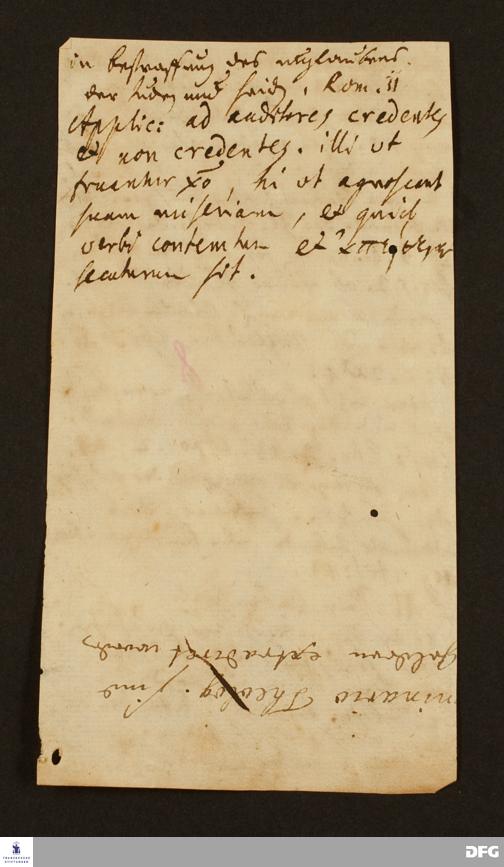 in bestraffung des unglaubens
der Juden und Heiden, Rom. 11
Applic: ad auditores credentes
et non credentes. illi ut
fruantur Xo, hi ut agnoscant
suam miseriam, et quid
verbi contemtum et
secuturum sit.
Galdern extradiret worden
minario Theolog. sind
FRANCKESCHE
STIFTUNGEN
DFG